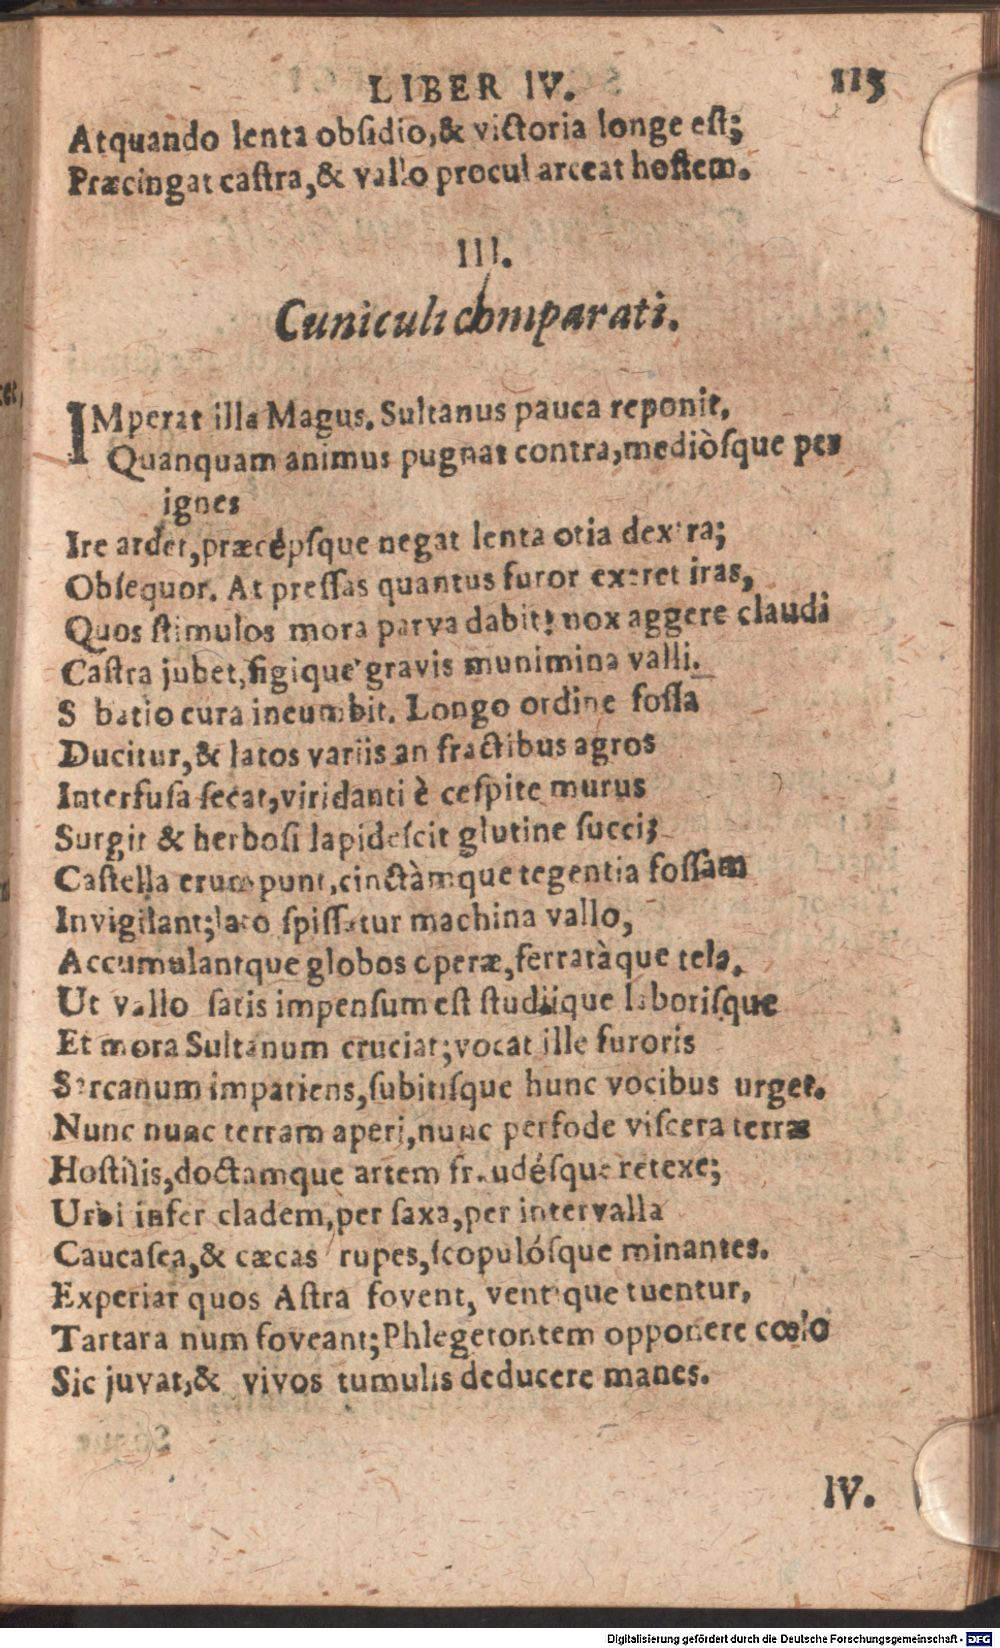 LIBER IV. 115
Atquando lenta obſidio,& victoria longe eſt;
Præcingat caſtra,& vallo procul arceat hoſtem.
III.
Cuniculi comparati.
IMperat illa Magus. Sultanus pauca reponit,
Quanquam animus pugnat contra,mediòſque per
ignes
Ire ardet,præcépſque negat lenta otia dextra;
Obſequor. At preſſas quantus furor exeret iras,
Quos ſtimulos mora parva dabit! nox aggere claudi
Caſtra jubet,figique gravis munimina valli.
S batio cura incumbit. Longo ordine foſſa
Ducitur,& latos variis an fractibus agros
Interfuſa ſecat,viridanti è ceſpite murus
Surgit & herboſi lapideſcit glutine ſucci;
Caſtella erumpunt,cinctàmque tegentia foſſam
Invigilant;lato ſpiſſatur machina vallo,
Accumulantque globos operæ,ferratàque tela.
Ut vallo ſatis impenſum eſt studiique laboriſque
Et mora Sultanum cruciat;vocat ille furoris
Sercanum impatiens,ſubitiſque hunc vocibus urget.
Nunc nunc terram aperi,nunc perfode viſcera terræ
Hoſtilis,doctamque artem fraudéſque retexe;
Urbi infer cladem,per ſaxa,per intervalla
Caucaſea,& cæcas rupes,ſcopulóſque minantes.
Experiar quos Aſtra fovent, ventique tuentur,
Tartara num foveant;Phlegetontem opponere cœlo
Sic juvat,& vivos tumulis deducere manes.
IV.
Digitalisierung gefördert durch die Deutsche Forschungsgemeinschaft - DFG